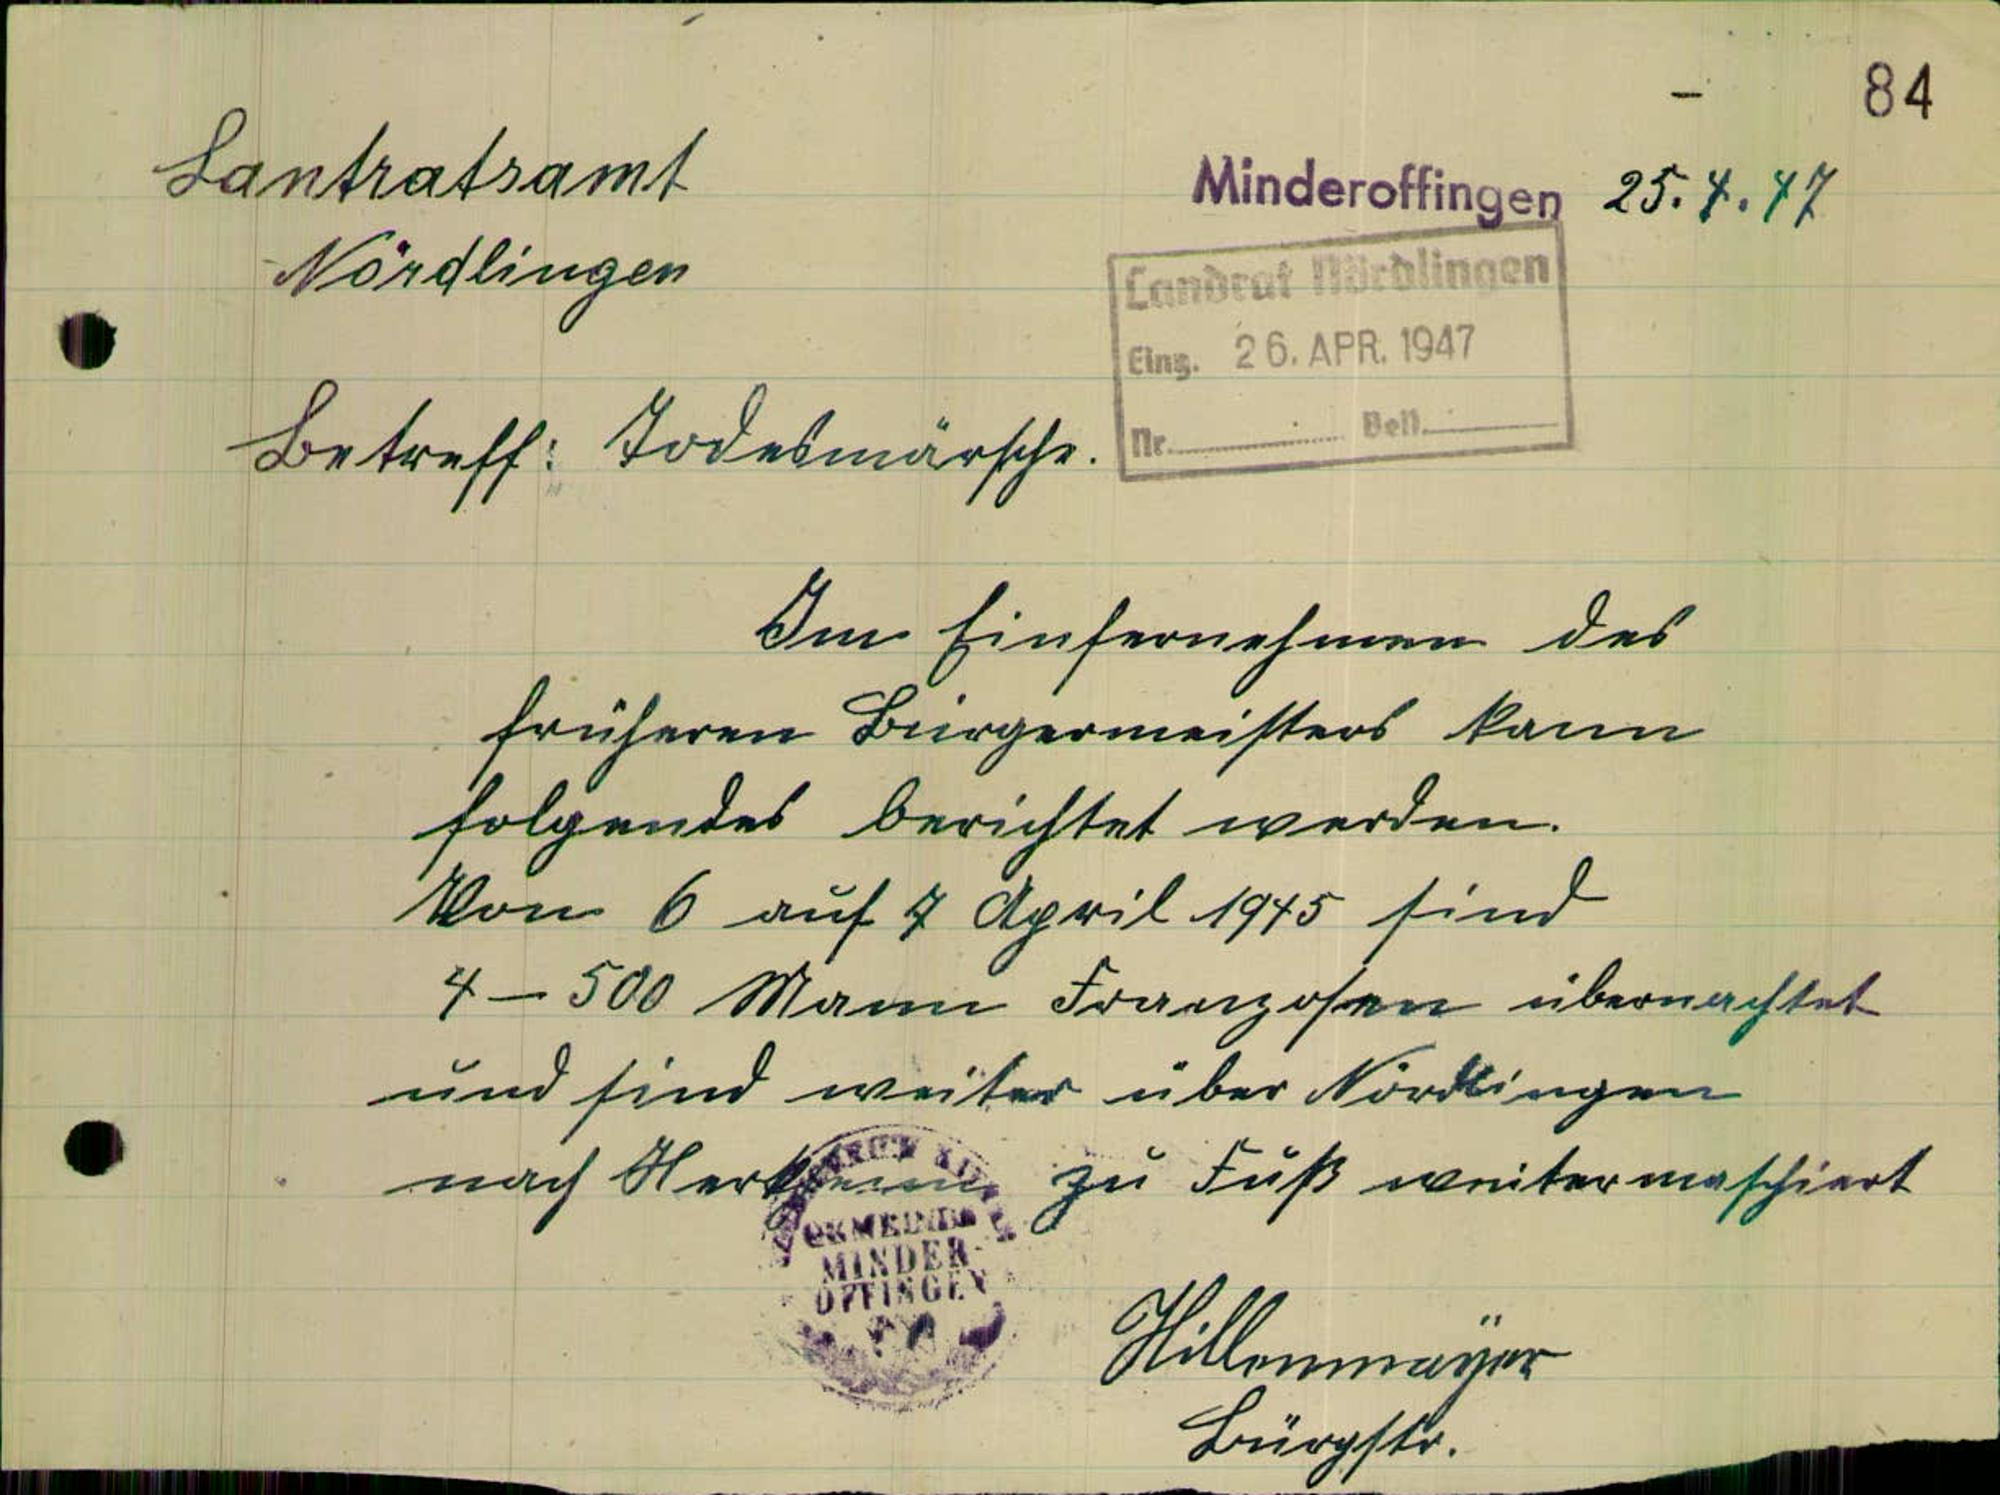 84
Lantratsamt
Minderoffingen 25.4.47
Nördlingen
Landrat Nördlingen
Eing. 26. APR. 1947
Nr. Beil.
Betreff: Todesmärsche.
Im Einfernehmen des
früheren Bürgermeisters kann
folgendes berichtet werden.
Von 6 auf 7 April 1945 sind
4 – 500 Mann Franzosen übernachtet
und sind weiter über Nördlingen
nach zu Fuß weitermaschiert
GEMEINDE
MINDER-
OFFINGEN
Hillenmayer
Bürgstr.